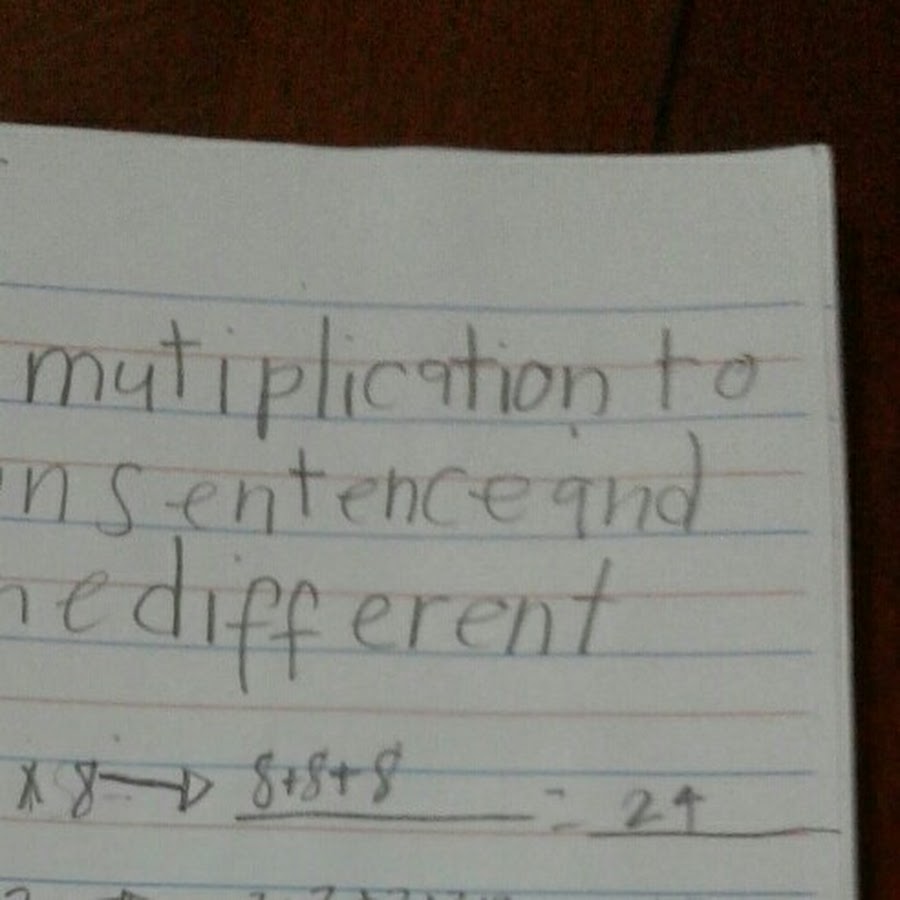 mutiplication to
n sentence and
e different
x 8 → 8+8+8 = 24